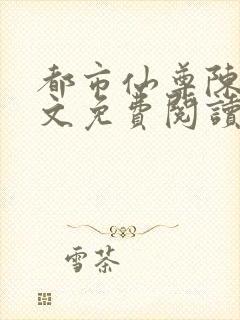 都市仙尊陳
文免費閱讀
雪茶